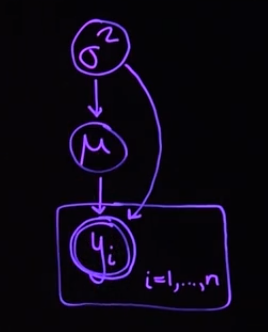 σ²
μ
yᵢ
i=1,...,n